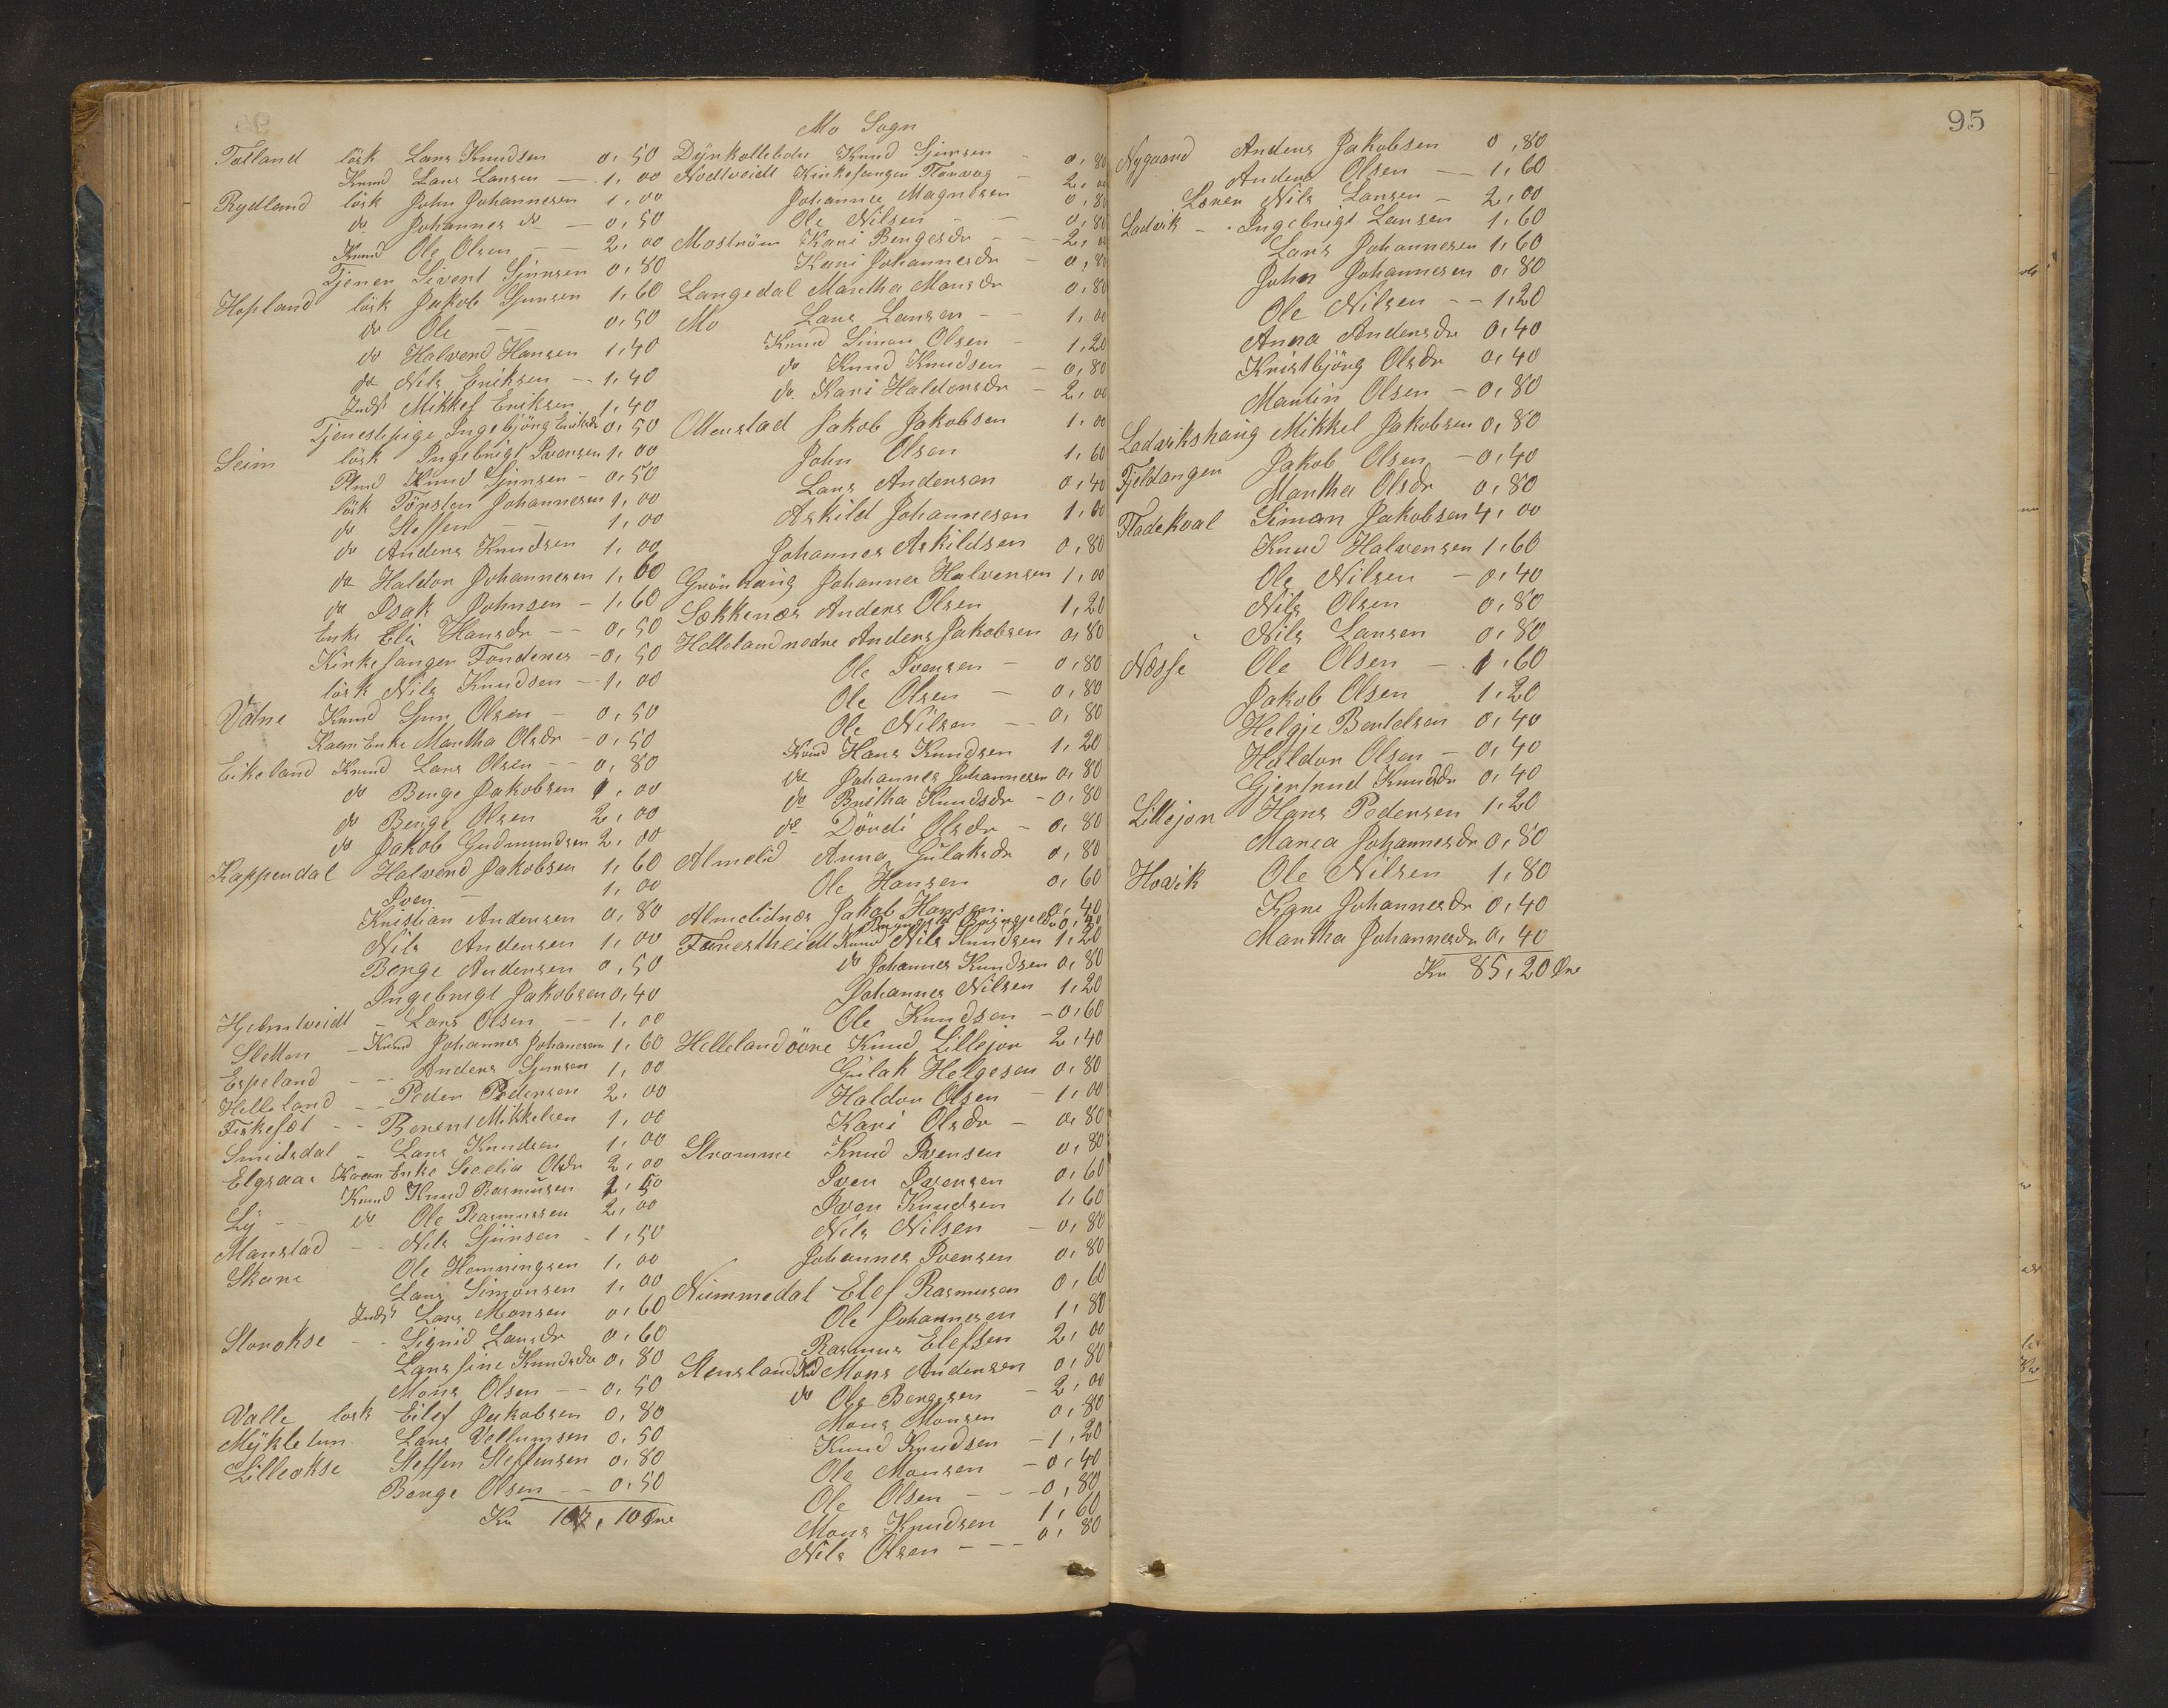 Tosland lösk Lars Knudsen 0,50
Knud Lars Larsen — 1,00
Rydland lösk John Johannesen 1,00
do Johannes do — 0,50
Knud Ole Olsen — — 2,00
Tjener Sivert Sjursen 0,80
Hopland lösk Jakob Sjursen 1,60
do Ole — — 0,50
do Halvord Hansen 1,40
do Nils Eriksen — 1,40
Inds Mikkel Eriksen 1,40
Tjenestepige Ingebjörg Eriksdr 0,50
Seim lösk Ingebrigt Iversen 1,00
Knud Sjursen – 0,50
lösk Törsten Johannesen 1,00
do Steffen — — 1,00
do Anders Knudsen 1,00
do Haldor Johannesen 1,60
do Isak Johnsen – 1,60
Enke Eli Hansdr — 0,50
Kirkesanger Tondenes – 0,50
lösk Nils Knudsen — 1,00
Vatne Knud Sjur Olsen – 0,50
Kaarenke Martha Olsdr – 0,50
Eikeland Knud Lars Olsen — 0,80
do Berge Jakobsen 1,00
do Berge Olsen 2,00
do Jakob Gudmundsen 2,00
Kappendal Halvord Jakobsen 1,60
Iver — 1,00
Kristian Andersen 0,80
Nils Andersen 1,00
Berge Andersen 0,50
Ingebrigt Jakobsen 0,40
Hjelmtveidt – Lars Olsen — 1,00
Sletten – Knud Johannes Johanesen 1,60
Espeland – – Anders Sjursen 1,00
Helleland – – Peder Pedersen 2,00
Fiskeset – – Berent Mikkelsen 1,00
Smidsdal – Lars Knudsen 1,00
Elgsaas Kaarenke Secelia Olsdr 2,00
Knud Knud Rasmusen 1,50
Ly – – do Ole Rasmussen 2,00
Manstad – – Nils Sjursen – 1,50
Skare Ole Hemningsen 1,00
Lars Simonsen 1,00
Inds Lars Monsen 0,60
Storokse – – Sigrid Larsdr 0,60
Larssine Knudsdr 0,80
Mons Olsen — 0,50
Valle lösk Eilef Jakobsen 0,80
Mykletun Lars Vellumsen 0,50
Lilleokse Steffen Steffensen 0,80
Berge Olsen — 0,50
Kr 107,10 Øre
Mo Sogn
Dyrkolbotn Knud Sjursen – 0,80
Nodtveidt Kirkesanger Norvag – 2,00
Johannes Magnesen 0,80
Ole Nilsen – – 0,80
Moström Kari Bergesdr – – 2,00
Kari Johannesdr – 0,80
Langedal Martha Monsdr 0,80
Mo Lars Larsen – – 1,00
Knud Simon Olsen – 1,20
do Knud Knudsen – 0,80
do Kari Haldorsdr – 2,00
Otterstad Jakob Jakobsen 1,00
John Olsen 1,60
Lars Andersen 0,40
Askild Johannesen 1,60
Johannes Askildsen 0,80
Grönhaug Johannes Halvorsen 1,00
Sökkenes Anders Olsen 1,20
Hellelandnedre Anders Jakobsen 0,80
Ole Iversen – 0,80
Ole Olsen – 0,80
Ole Nilsen – – 0,80
Knud Hans Knudsen 1,20
do Johannes Johannesen 0,80
do Britha Knudsdr – 0,80
do Dordi Olsdr – 0,80
Almelid Anna Gulaksdr 0,80
Ole Hansen 0,60
Almelidnes Jakob Hansen 0,40
Fanestheidt Knud Nils Knudsen 1,20
do Johannes Knudsen 0,80
Johannes Nilsen 1,20
Ole Knudsen – 0,60
Hellelandövre Knud Lillejor 2,40
Gulak Helgesen 0,80
Haldor Olsen – 1,00
Kari Olsdr – 0,80
Stromme Knud Iversen 0,80
Iver Iversen 0,60
Iver Knudsen 1,60
Nils Nilsen – 0,80
Johannes Iversen 0,80
Nummedal Elef Rasmusen 0,60
Ole Johannesen 1,80
Rasmus Elefsen 2,00
Stensland Kd Mons Andersen 0,80
do Ole Bergesen – 2,00
Mons Monsen 0,80
Knud Knudsen – 1,20
Ole Monsen – 0,40
Ole Olsen – – – 0,80
Mons Knudsen 1,60
Nils Olsen – – – 0,80
95
Nygaard Anders Jakobsen 0,80
Anders Olsen — 1,60
Lärer Nils Larsen – 2,00
Ladvik – – Ingebrigt Larsen 1,60
Lars Johannesen 1,60
John Johannesen 0,80
Ole Nilsen – – 1,20
Anna Andersdr 0,40
Kristbjörg Olsdr 0,40
Martin Olsen – 0,80
Ladvikshaug Mikkel Jakobsen 0,80
Fjeldanger Jakob Olsen – 0,40
Martha Olsdr 0,80
Fladekval Simon Jakobsen 4,00
Knud Halvorsen 1,60
Ole Nilsen – 0,40
Nils Olsen 0,80
Nils Larsen 0,80
Nesse Ole Olsen – 1,60
Jakob Olsen 1,20
Helgje Bertelsen 0,40
Haldor Olsen – 0,40
Gjertrud Knudsdr 0,40
Lillejor Hans Pedersen 1,20
Maria Johannesdr 0,80
Hovik Ole Nilsen 1,80
Kari Johannesdr 0,40
Martha Johannesdr 0,40
Kr 85,20 Øre